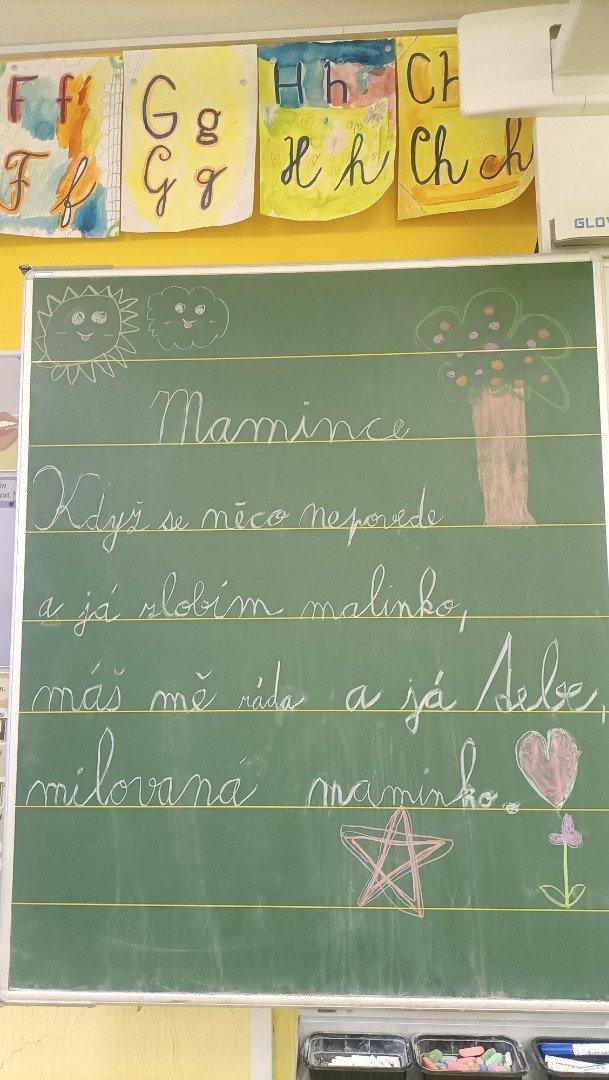 F f
F f
G g
G g
H h
H h
Ch
Ch ch
GLOV
Mamince
Když se něco nepovede
a já zlobím malinko,
máš mě ráda a já Tebe,
milovaná maminko.